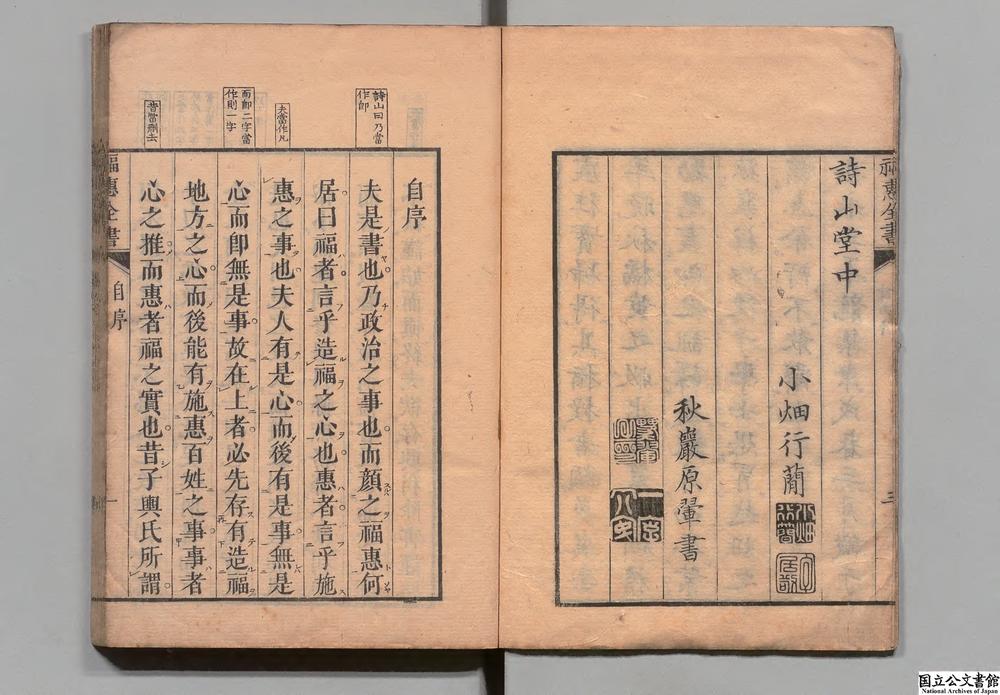 福惠全書
三
詩山堂中
小畑行蕑
秋巖原翬書
詩山曰乃當
作即
夫當作凡
而即二字當
作則一字
昔當刪去
自序
夫是書也乃政治之事也而顏之福惠何
居曰福者言乎造福之心也惠者言乎施
惠之事也夫人有是心而後有是事無是
心而即無是事故在上者必先存有造福
地方之心而後能有施惠百姓之事事者
心之推而惠者福之實也昔子輿氏所謂
福惠全書
自序
一
国立公文書館
National Archives of Japan